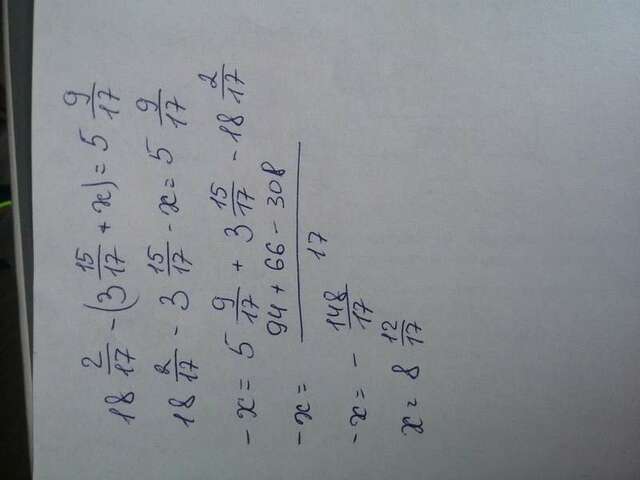 18 2/17 - (3 15/17 + x) = 5 9/17
18 2/17 - 3 15/17 - x = 5 9/17
-x = 5 9/17 + 3 15/17 - 18 2/17
-x = (94 + 66 - 308)/17
-x = - 148/17
x = 8 12/17